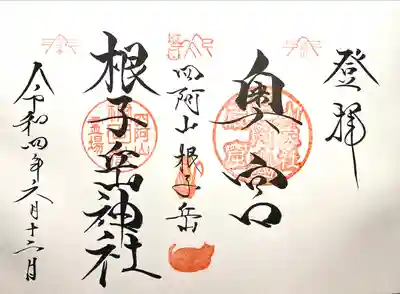 登拝
奥宮
四阿山根子岳
根子岳神社
令和四年六月十二日
四阿山